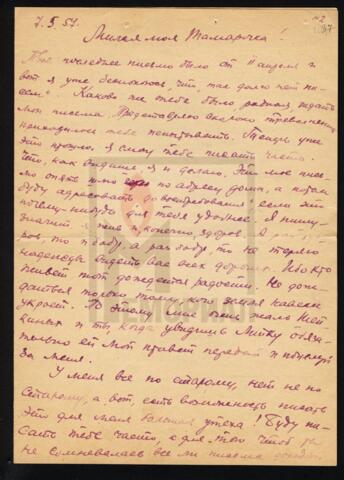 7.5.51.
№2
Милая моя Тамарочка!
Твое последнее письмо было от 11 апреля и
вот я уже беспокоюсь, что так долго нет пи-
сем. Каково же тебе было, родная ждать
мои письма. Представляю сколько треволнений
приходилось тебе испытывать. Теперь уже
это прошло. Я смогу тебе писать часто.
Что, как видишь, я и делаю. Это мое пись-
мо опять шлю по адресу дома, а потом
буду адресовать до востребования если это
почему-нибудь для тебя удобнее. Я пишу
значит я жив и, конечно, здоров. А раз здо-
ров, то и бодр, а раз бодр, то не теряю
надежды видеть вас всех дорогих. Ибо кто
живет тот дождется радости. Не дож-
даться только тому, кого земля навеки
укроет. Поэтому мне очень жаль
и ты, когда увидишь Митку обяза-
тельно ей мой привет передай и поцелуй
за меня.
У меня все по старому, нет не по
старому, а вот, есть возможность писать
Это для меня большая утеха! Буду пи-
сать тебе часто, а для того чтоб
не сомневалась все ли письма доходят
МЕМОРИАЛ